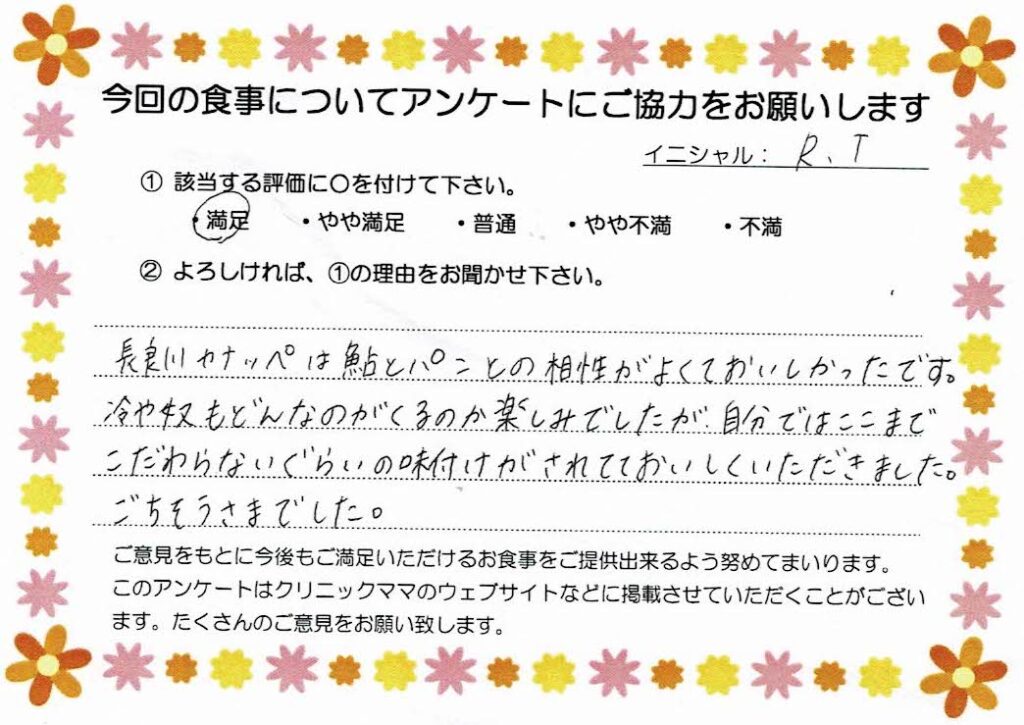 今回の食事についてアンケートにご協力をお願いします
イニシャル： R、T
① 該当する評価に○を付けて下さい。
・満足 ・やや満足 ・普通 ・やや不満 ・不満
② よろしければ、①の理由をお聞かせ下さい。
長良川カナッペは鮎とパンとの相性がよくておいしかったです。
冷や奴もどんなのがくるのか楽しみでしたが、自分ではここまで
こだわらないぐらいの味付けがされてておいしくいただきました。
ごちそうさまでした。
ご意見をもとに今後もご満足いただけるお食事をご提供出来るよう努めてまいります。
このアンケートはクリニックママのウェブサイトなどに掲載させていただくことがござい
ます。たくさんのご意見をお願い致します。